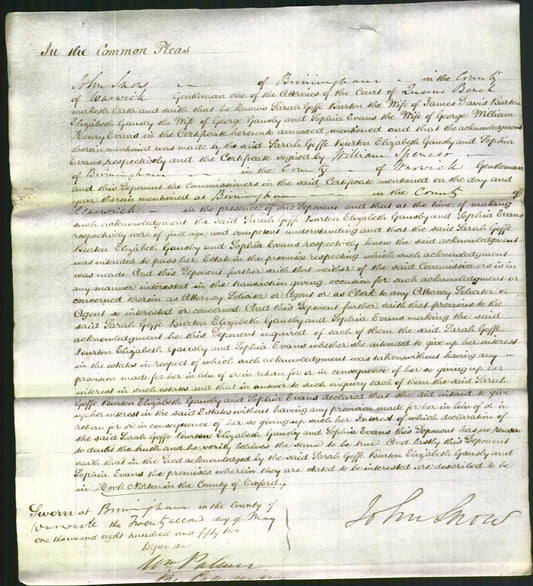 In the Common Pleas
John Snow of Birmingham in the County
of Warwick Gentleman one of the Attornies of the Court of Queens Bench
maketh Oath and saith that he knows Sarah Goffe Burton the Wife of James Davis Burton
Elizabeth Gausby the Wife of George Gausby and Sophia Evans the Wife of George William
Henry Evans in the Certificate hereunto annexed mentioned and that the acknowledgment
therein mentioned was made by the said Sarah Goffe Burton Elizabeth Gausby and Sophia
Evans respectively and the Certificate signed by William Spencer
of Birmingham in the County of Warwick Gentleman
and this Deponent the Commissioners in the said Certificate mentioned on the day and
year therein mentioned at Birmingham in the County of
Warwick in the presence of one Deponent and that at the time of making
such acknowledgment the said Sarah Goffe Burton Elizabeth Gausby and Sophia Evans
respectively were of full age and competent understanding and that the said Sarah Goffe
Burton Elizabeth Gausby and Sophia Evans respectively knew the said acknowledgment
was intended to pass her Estate in the premises respecting which such acknowledgment
was made And this Deponent further saith that neither of the said Commissioners is in
any manner interested in the transaction giving occasion for such acknowledgment or
concerned therein as Attorney Solicitor or Agent or as Clerk to any Attorney Solicitor or
Agent so interested or concerned And this Deponent further saith that previous to the
said Sarah Goffe Burton Elizabeth Gausby and Sophia Evans making the said
acknowledgment he this Deponent inquired of each of them the said Sarah Goffe
Burton Elizabeth Gausby and Sophia Evans whether she intended to give up her interest
in the estates in respect of which such acknowledgment was taken without having any
provision made for her in lieu of or in return for or in consequence of her so giving up her
interest in such estates and that in answer to such inquiry each of them the said Sarah
Goffe Burton Elizabeth Gausby and Sophia Evans declared that she did intend to give
up her interest in the said Estates without having any provision made for her in lieu of or in
return for or in consequence of her so giving up such her Interest of which declaration of
the said Sarah Goffe Burton Elizabeth Gausby and Sophia Evans this Deponent has no reason
to doubt the truth and he verily believes the same to be true And lastly this Deponent
saith that in the Deed acknowledged by the said Sarah Goffe Burton Elizabeth Gausby and
Sophia Evans the premises wherein they are stated to be interested are described to be
in Hook Norton in the County of Oxford.
Sworn at Birmingham in the County of
Warwick the Twenty second day of May
one thousand eight hundred and fifty two
Before me
Wm Palmer
John Snow